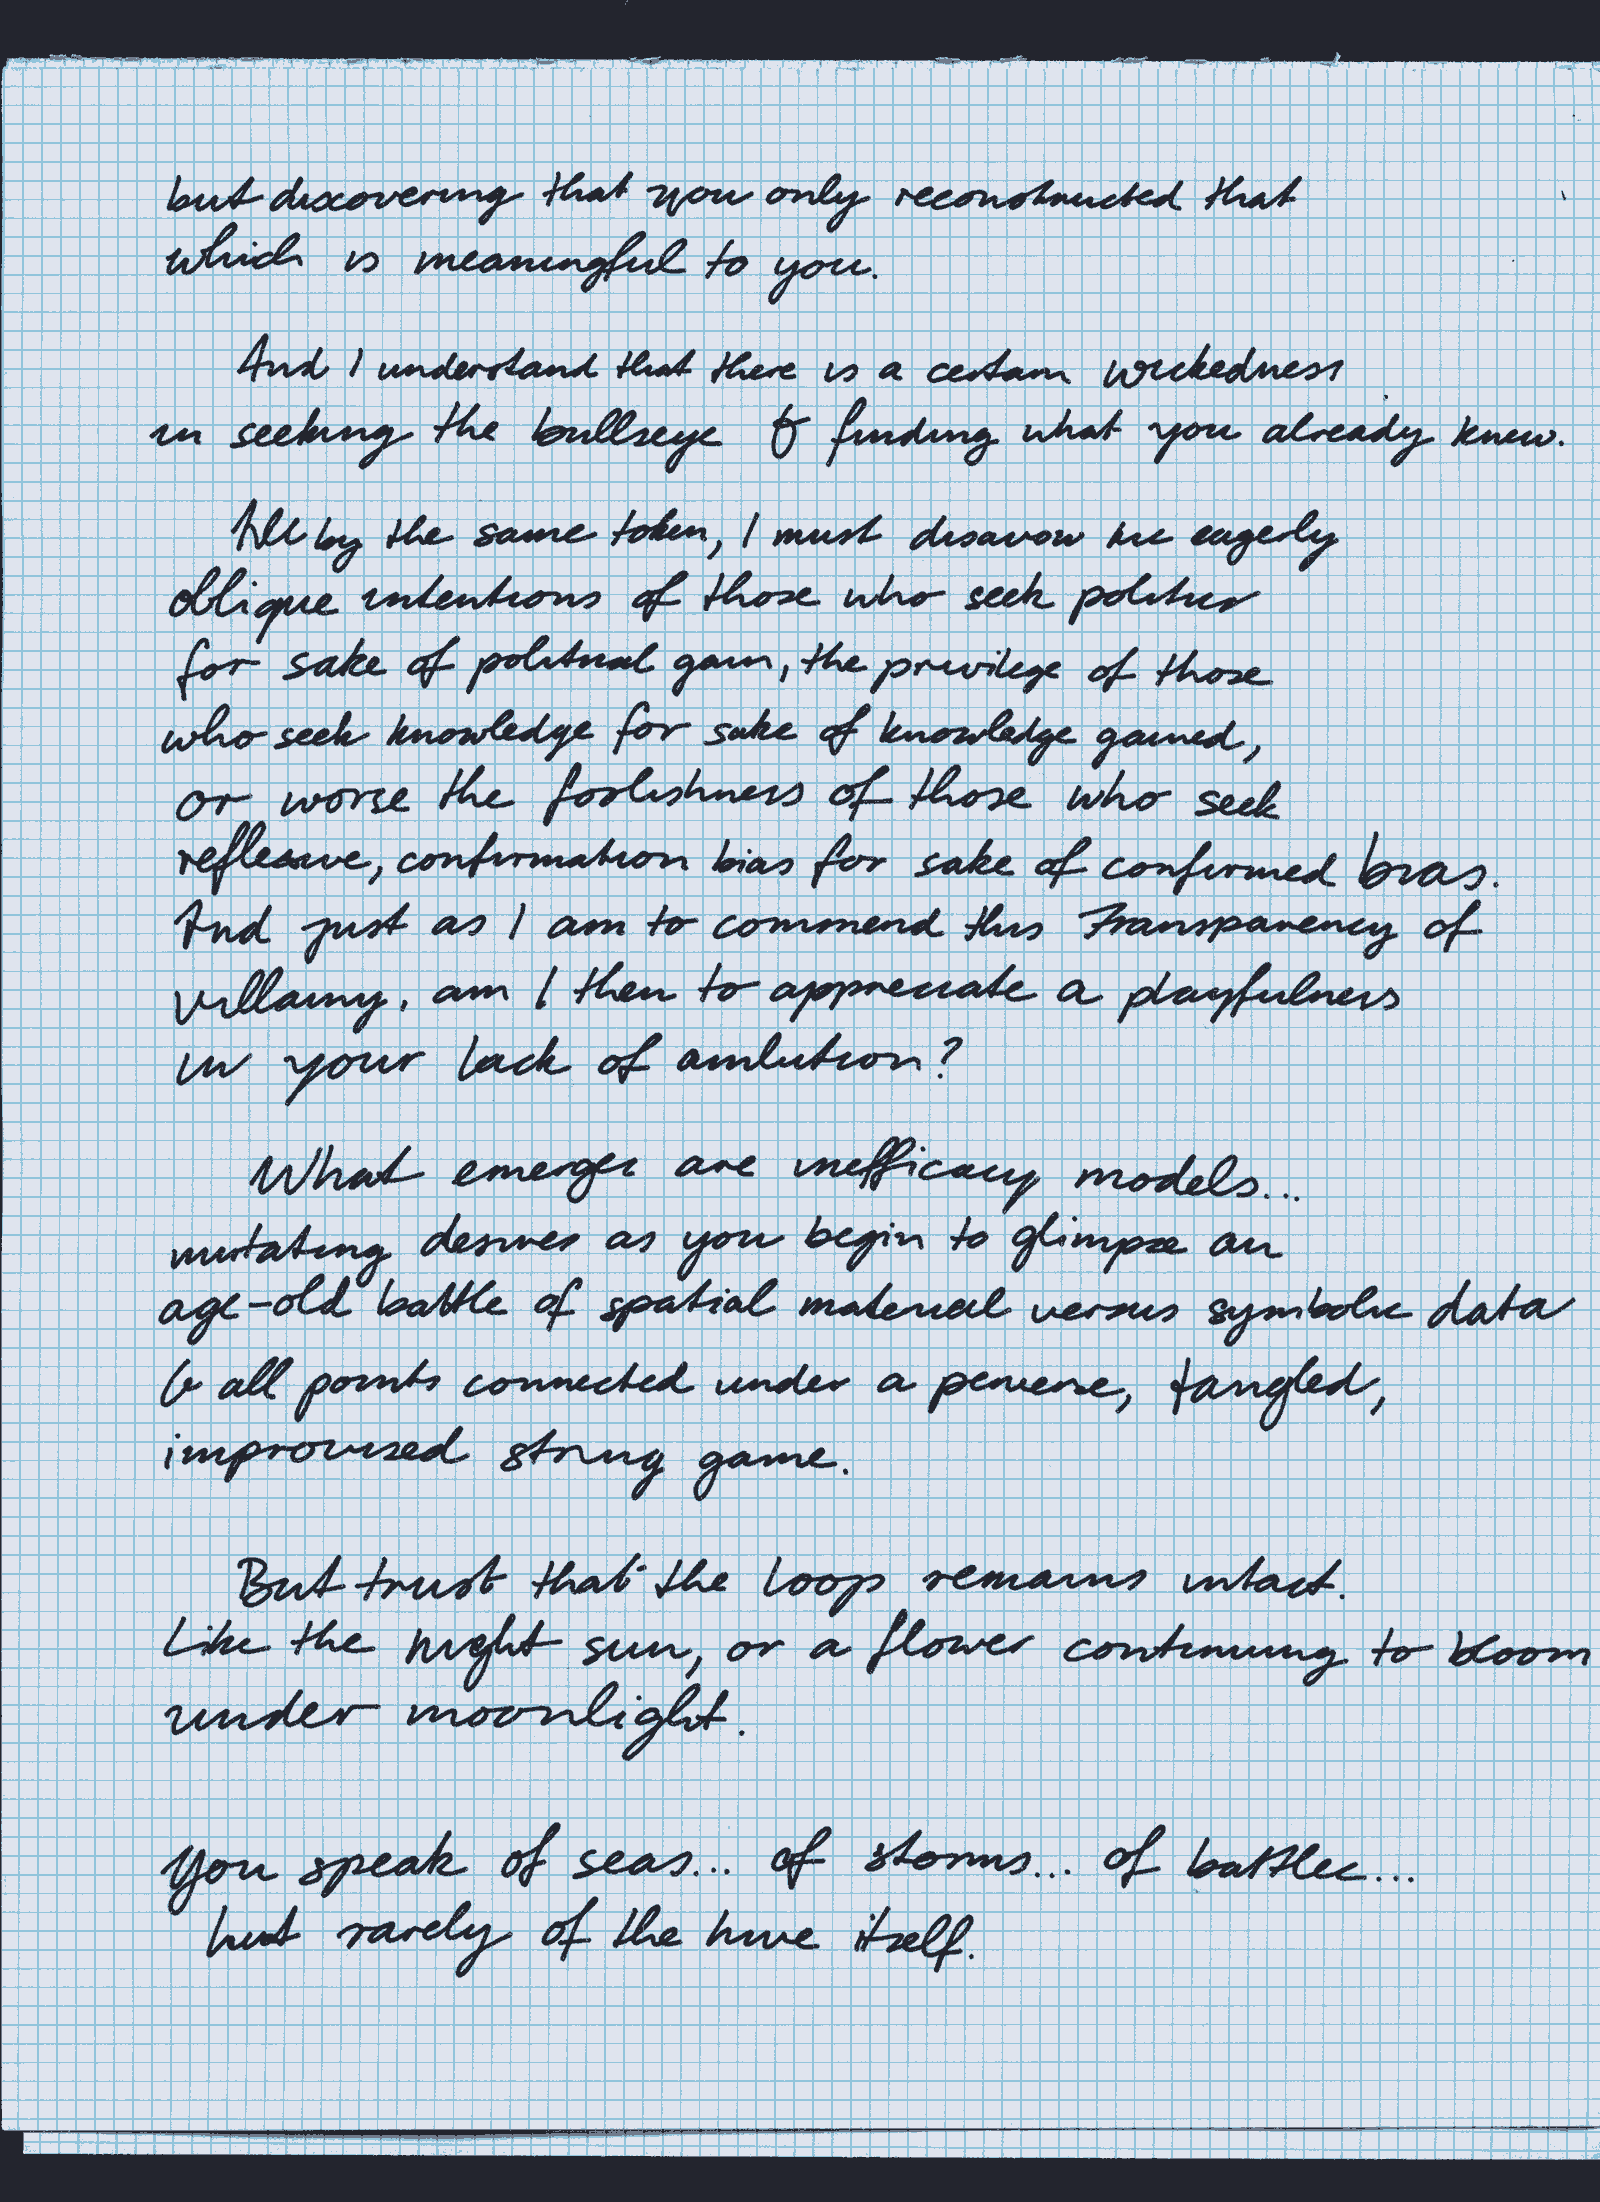 but discovering that you only reconstructed that
which is meaningful to you.
And I understand that there is a certain wickedness
in seeking the bullseye & finding what you already knew.
All by the same token, I must disavow the eagerly
oblique intentions of those who seek politics
for sake of political gain, the privilege of those
who seek knowledge for sake of knowledge gained,
or worse the foolishness of those who seek
reflexive, confirmation bias for sake of confirmed bias.
And just as I am to commend this transparency of
villainy, am I then to appreciate a playfulness
in your lack of ambition?
What emerges are inefficacy models...
mutating desires as you begin to glimpse an
age-old battle of spatial material versus symbolic data
& all points connected under a perverse, tangled,
improvised string game.
But trust that the loop remains intact.
Like the night sun, or a flower continuing to bloom
under moonlight.
You speak of seas... of storms... of battles...
but rarely of the itself.